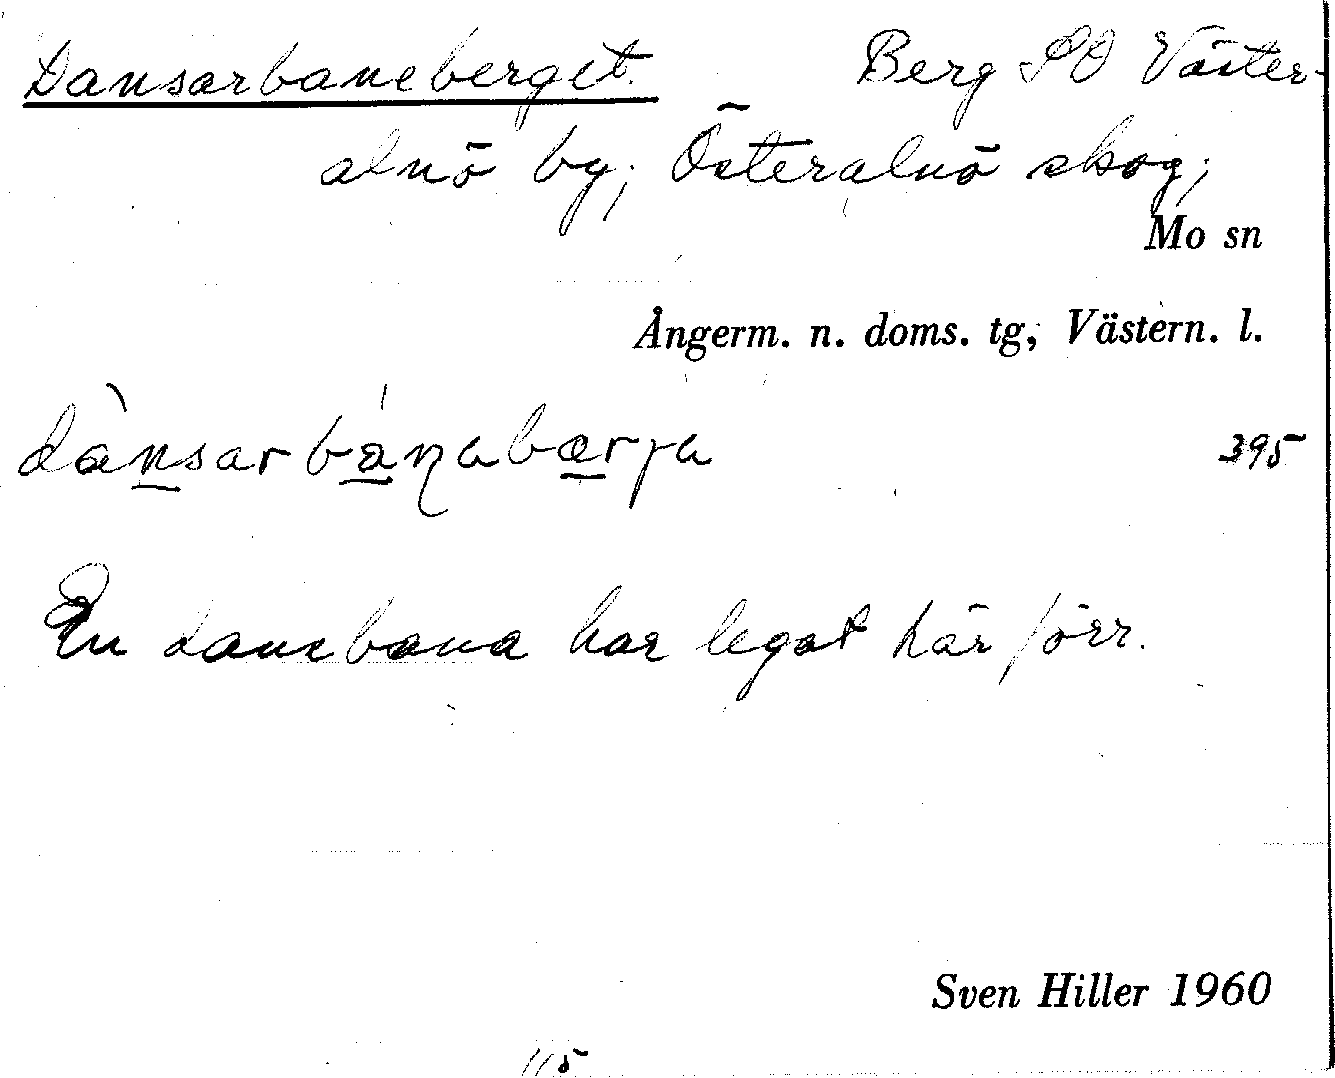 Dansarbaneberget. Berg SO Väster-
alnö by; Österalnö skog;
Mo sn
Ångerm. n. doms. tg, Västern. l.
dànsarbánabærja 395
En dansbana har legat här förr.
Sven Hiller 1960
115